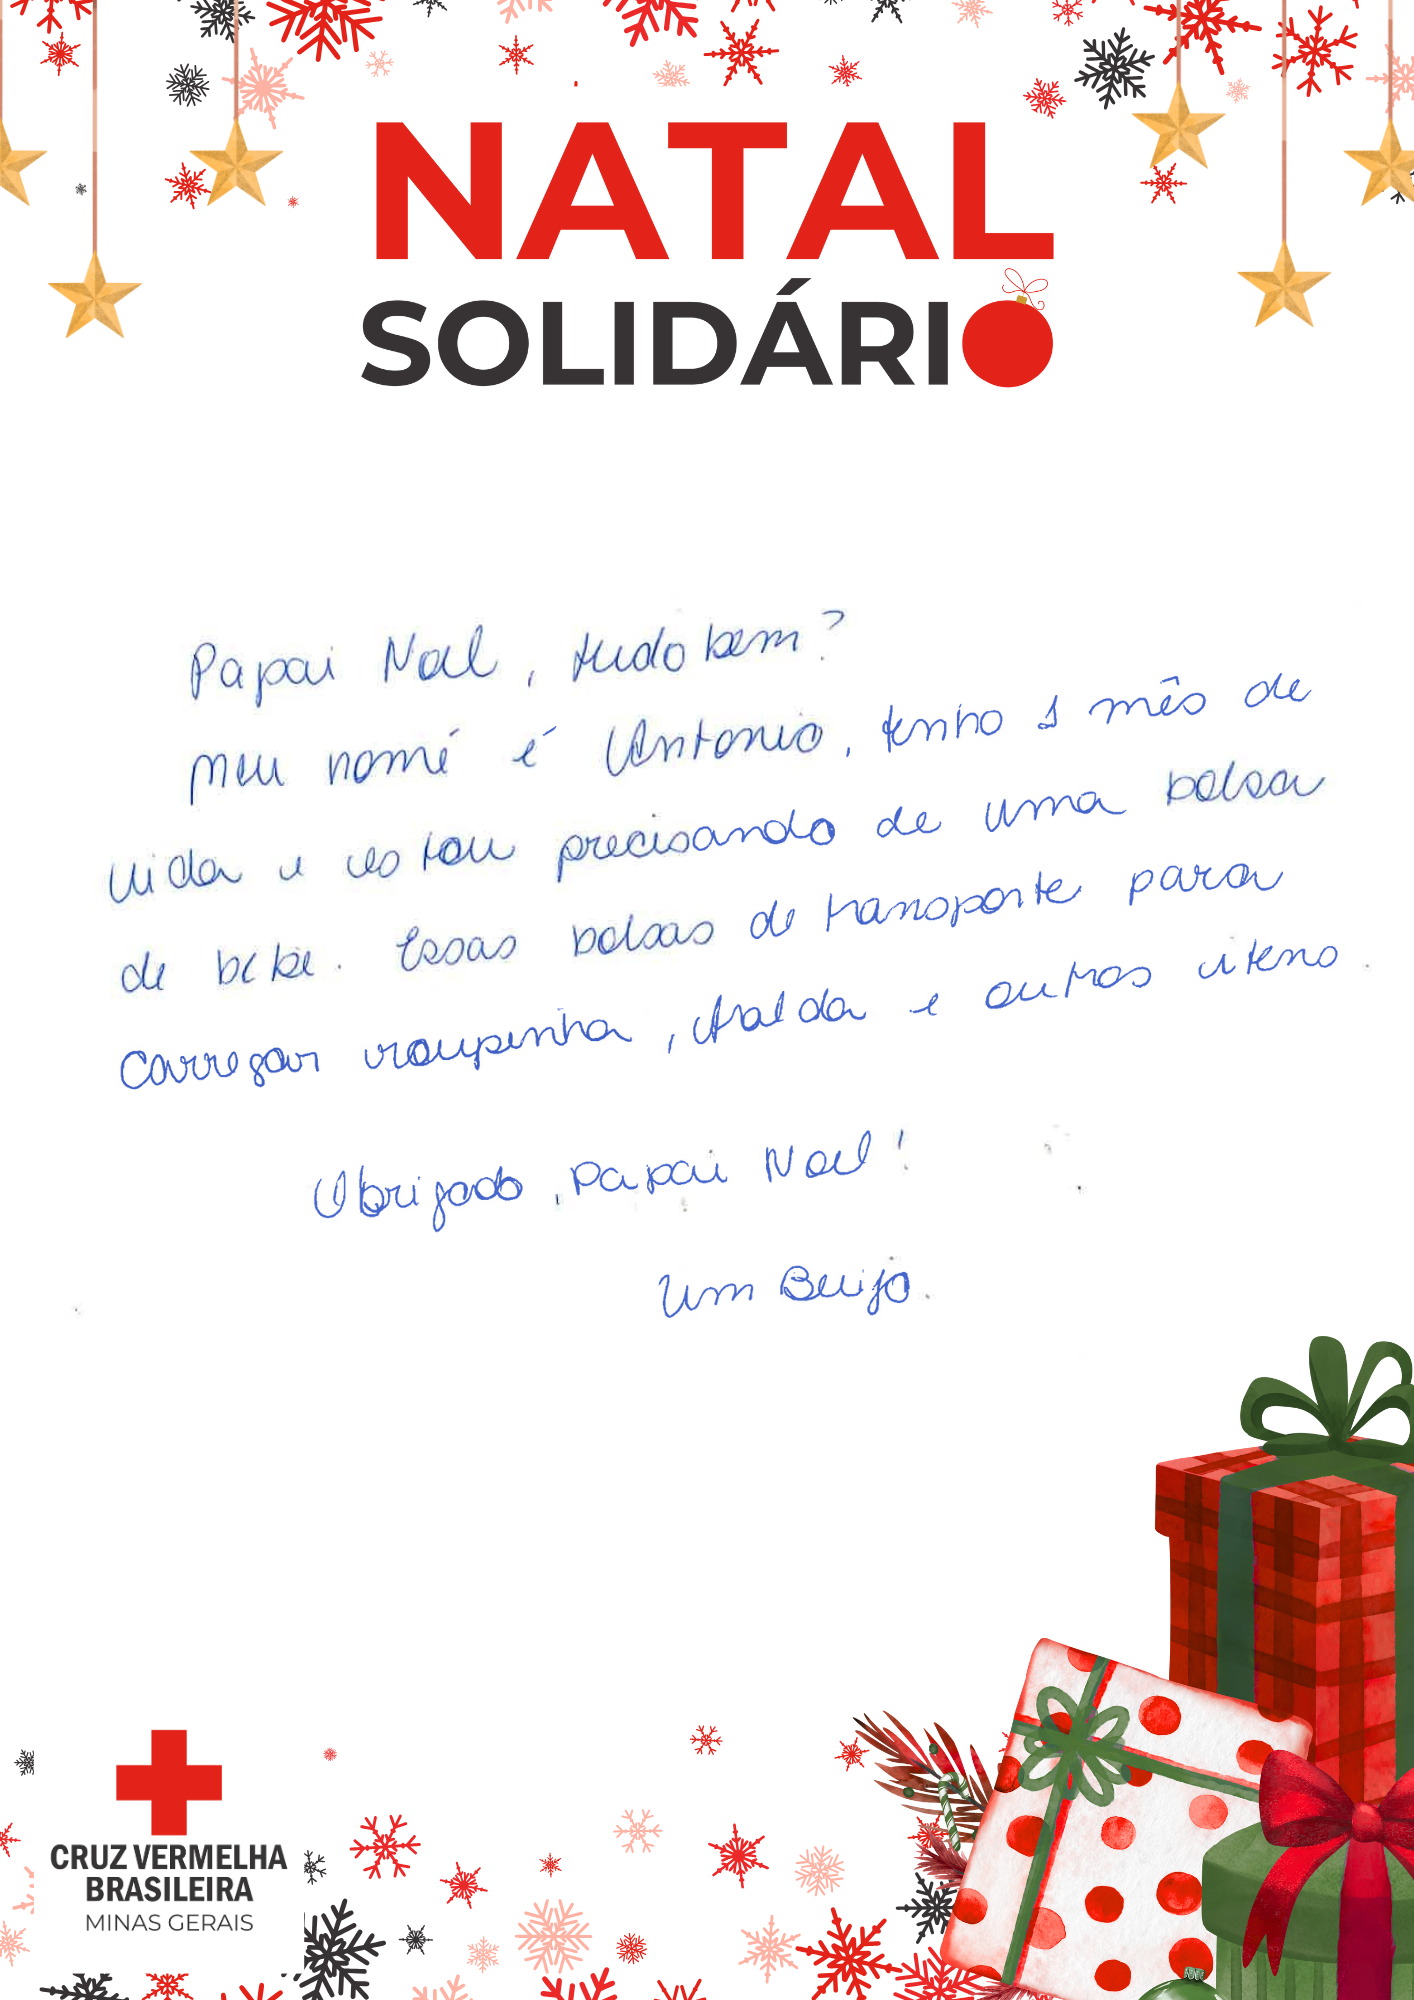 NATAL
SOLIDÁRIO
Papai Noel, tudo bem?
meu nome é Antonio, tenho 1 mês de
vida e estou precisando de uma bolsa
de bebe. Essas bolsas de transporte para
carregar roupinha, fralda e outros itens.
Obrigado, Papai Noel!
Um Beijo.
CRUZ VERMELHA
BRASILEIRA
MINAS GERAIS